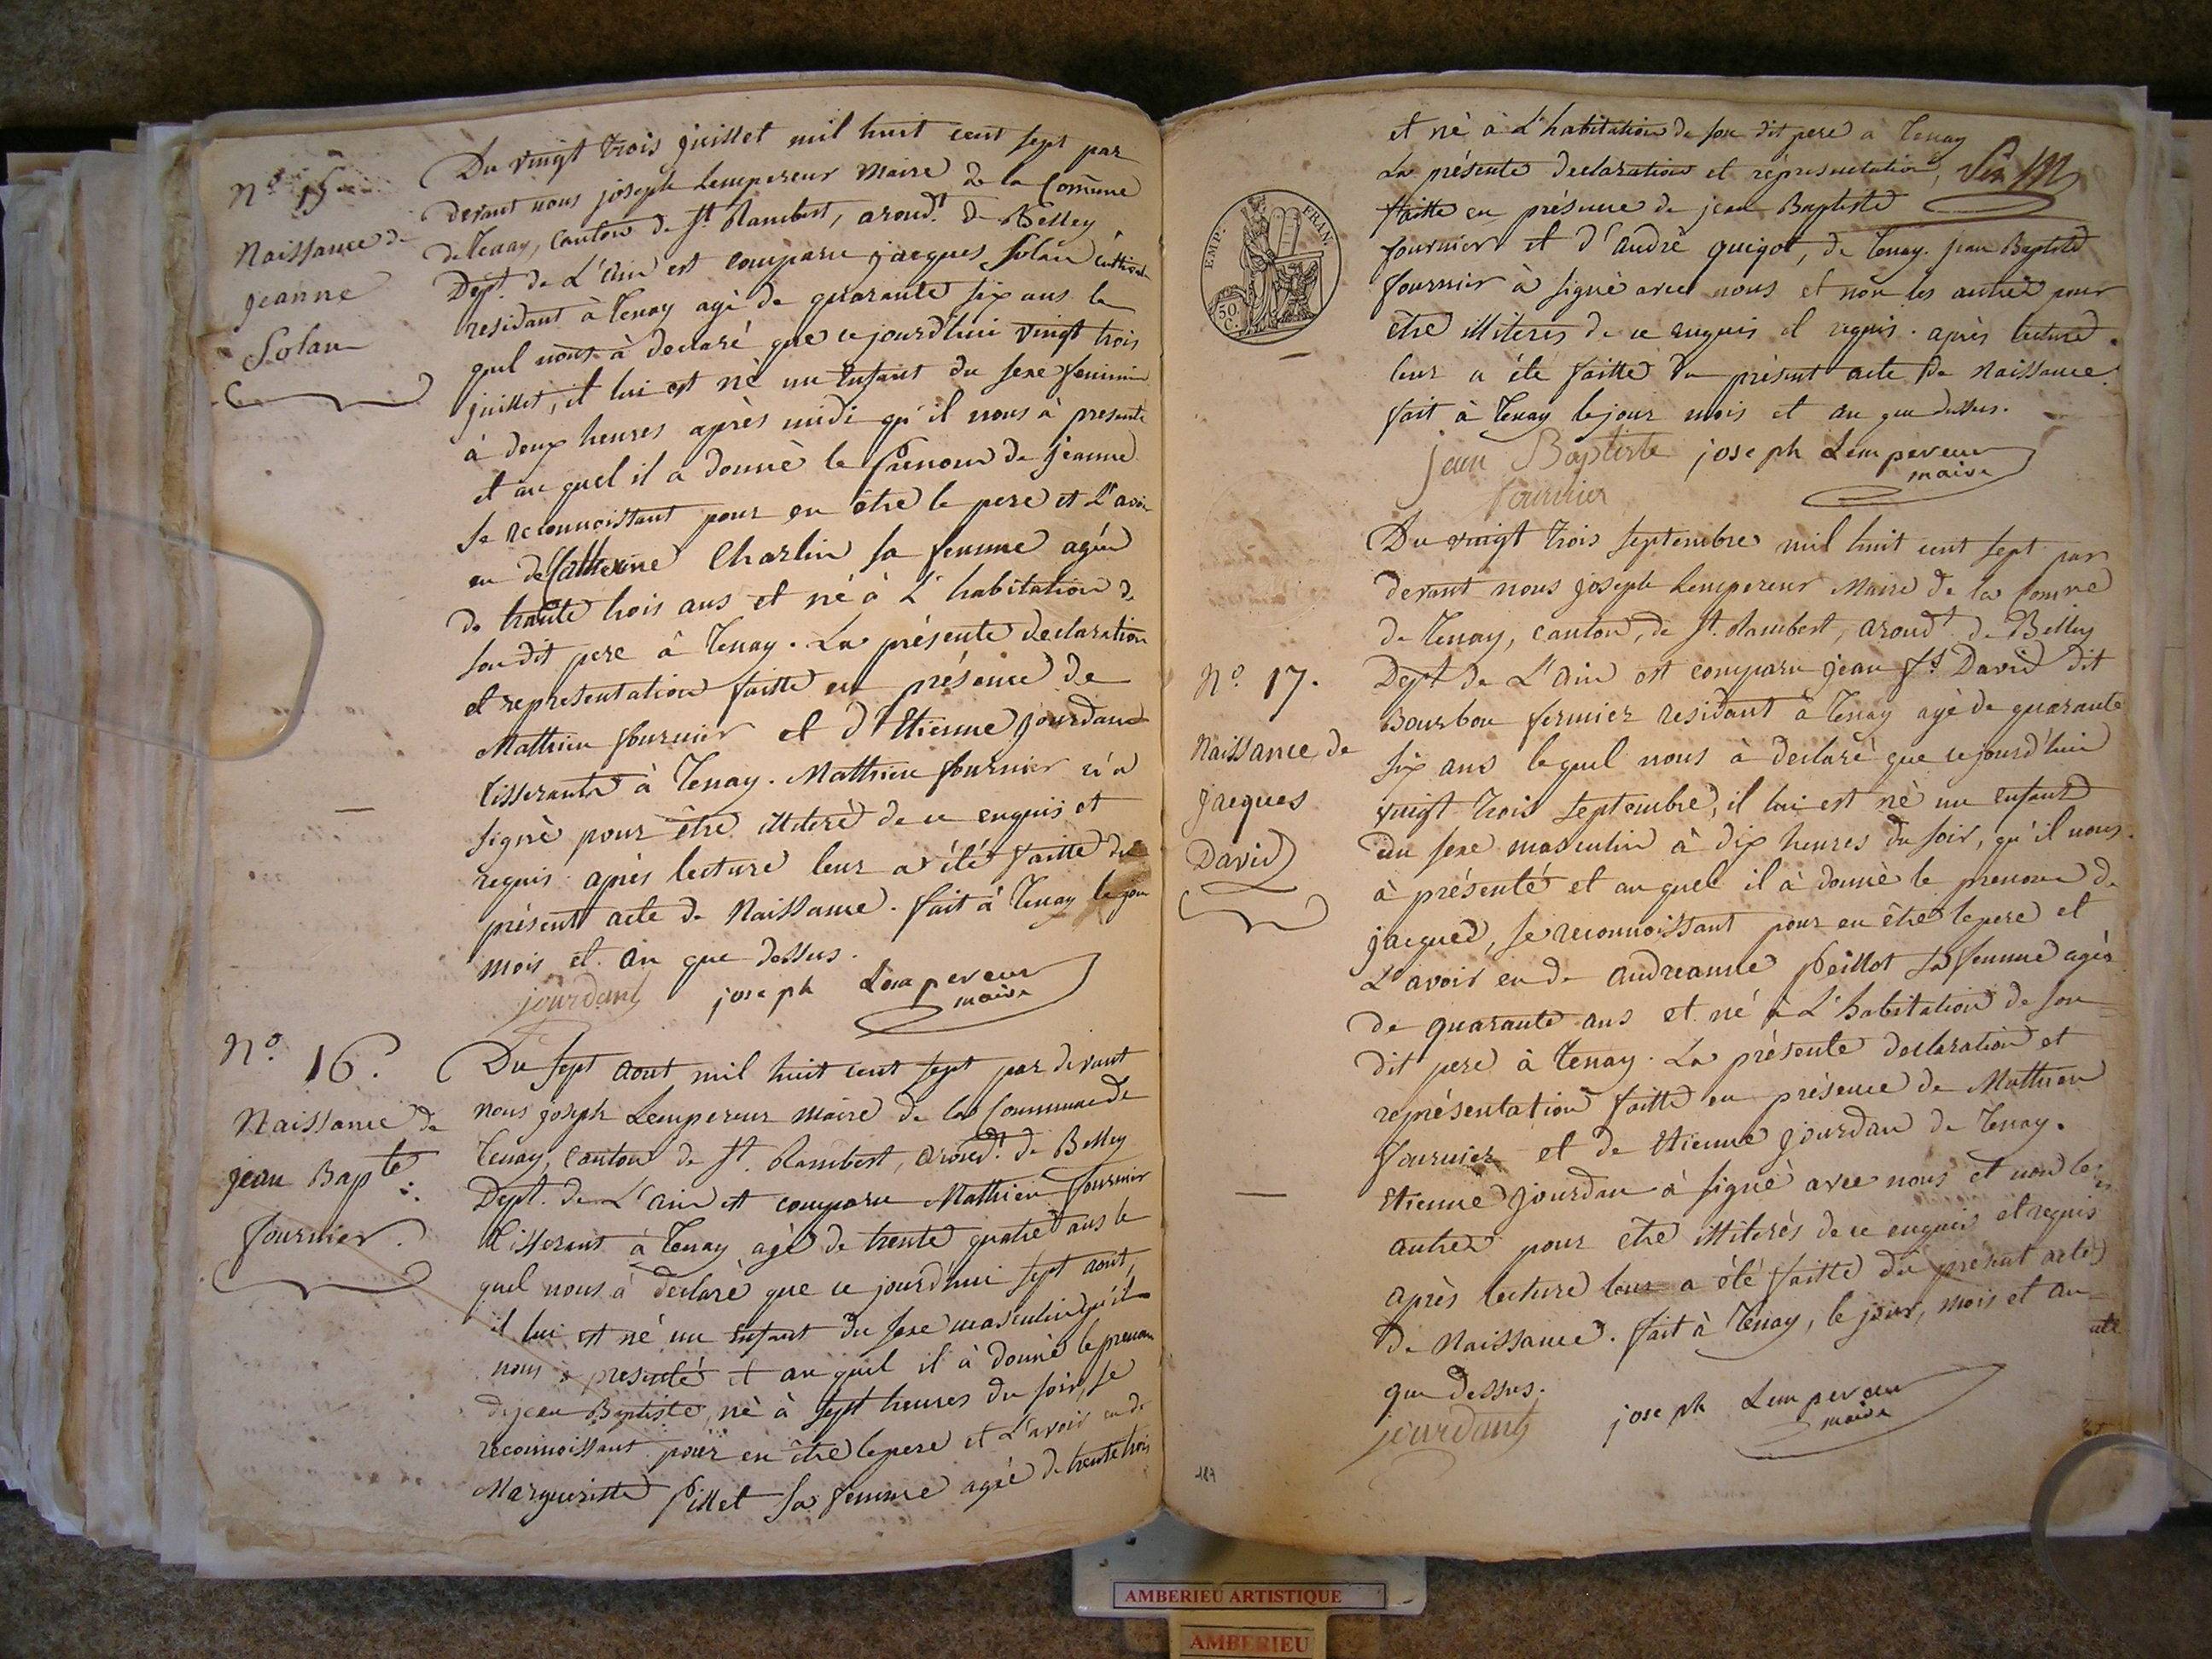 N.º 15.
Naissance de
jeanne
Solan
Du vingt trois juillet mil huit cent sept par
devant nous joseph Lempereur Maire de la Commune
de Tenay, canton de St. Rambert, arond.t de Belley
Dept. de L'ain est comparu jacques Solan
residant à Tenay agé de quarante six ans le
quel nous à declaré que cejourd'hui vingt trois
juillet, il lui est né un Enfant du sexe feminin
à deux heures après midi qu'il nous à presenté
et au quel il a donnè le Prenom de jeanne
se reconnoissant pour en être le pere et L'avoir
eu de Catherine Charlin sa femme agée
de trante trois ans et né à L'habitation de
son dit pere à Tenay. La présente declaration
et representation faitte en présence de
Mathieu fournier et d'Etienne jourdant
tisserants à Tenay. Mathieu fournier n'a
signè pour être illiteré de ce enquis et
requis après lecture leur a été faitte du
présent acte de Naissance. fait à Tenay le jour
mois et an que dessus.
jourdant joseph Lempereur
maire
N.º 16.
Naissance de
jean Bapte.
fournier.
Du sept aout mil huit cent sept par devant
nous joseph Lempereur maire de la Commune de
Tenay, canton de St. Rambert, arond.t de Belley
Dept. de L'ain est comparu Mathieu fournier
tisserant à Tenay agé de trente quatre ans le
quel nous à declaré que ce jourd'hui sept aout,
il lui est né un Enfant du sexe masculin qu'il
nous à presenté et au quel il à donnè le prenom
de jean Baptiste, né à sept heures du soir, se
reconnoissant pour en être le pere et L'avoir eu de
Margueritte Pillet sa femme agée de trente trois
et né à L'habitation de son dit pere à Tenay
La présente declaration et répresentation,
faitte en présence de jean Baptiste
fournier et d'andré guigot, de Tenay. jean Baptiste
fournier à signè avec nous et non les autres pour
être illiterés de ce enquis et requis. après lecture
leur a été faitte du présent acte de Naissance.
fait à Tenay le jour mois et an que dessus.
EMP. FRAN.
50 C.
jean Baptiste joseph Lempereur
fournier maire
N.º 17.
Naissance de
jacques
David
Du vingt trois septembre mil huit cent sept par
devant nous joseph Lempereur Maire de la Comme
de Tenay, canton, de St. Rambert, arond.t de Belley
Dept de L'ain est comparu jean fs David dit
Bourbon fermier residant à Tenay agé de quarante
six ans lequel nous à declaré que cejourd'hui
vingt trois septembre, il lui est né un enfant
du sexe masculin à dix heures du soir, qu'il nous
à présenté et au quel il à donnè le prenom de
jacques, se reconnoissant pour en être le pere et
L'avoir eu de andreanne Peillot sa femme agée
de quarante ans et né à L'habitation de son
dit pere à Tenay. La présente declaration et
représentation faitte en présence de Mathieu
fournier et de Etienne jourdan de Tenay.
Etienne jourdan à signè avec nous et non les
autres pour être illiterés de ce enquis et requis
après lecture leur a été faitte du présent acte
de Naissance. fait à Tenay, le jour, mois et an
que dessus.
jourdant joseph Lempereur
maire
187
AMBERIEU ARTISTIQUE
AMBERIEU